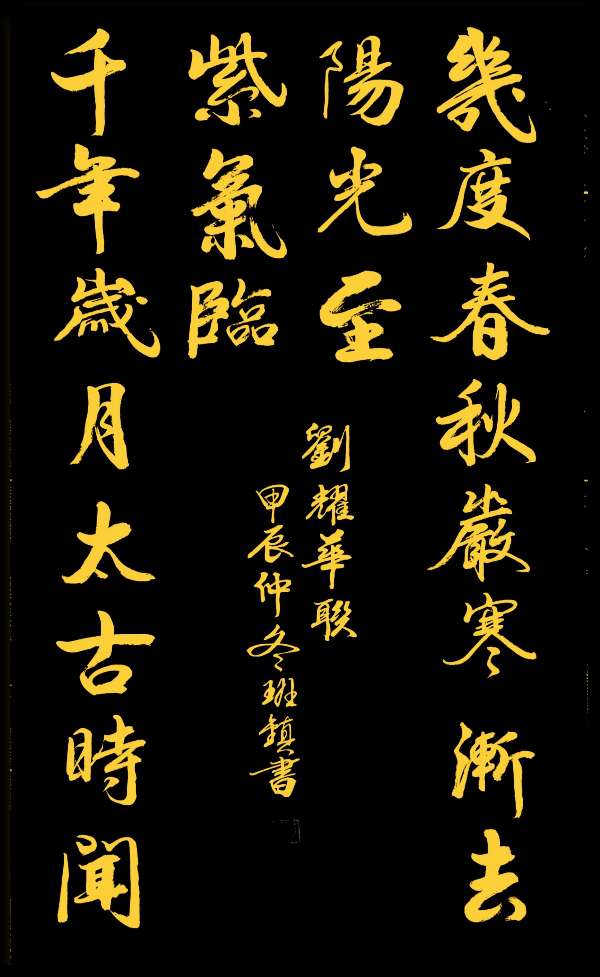 幾度春秋嚴寒漸去
陽光至
千年歲月太古時聞
紫氣臨
劉耀華聯
甲辰仲冬班鎮書